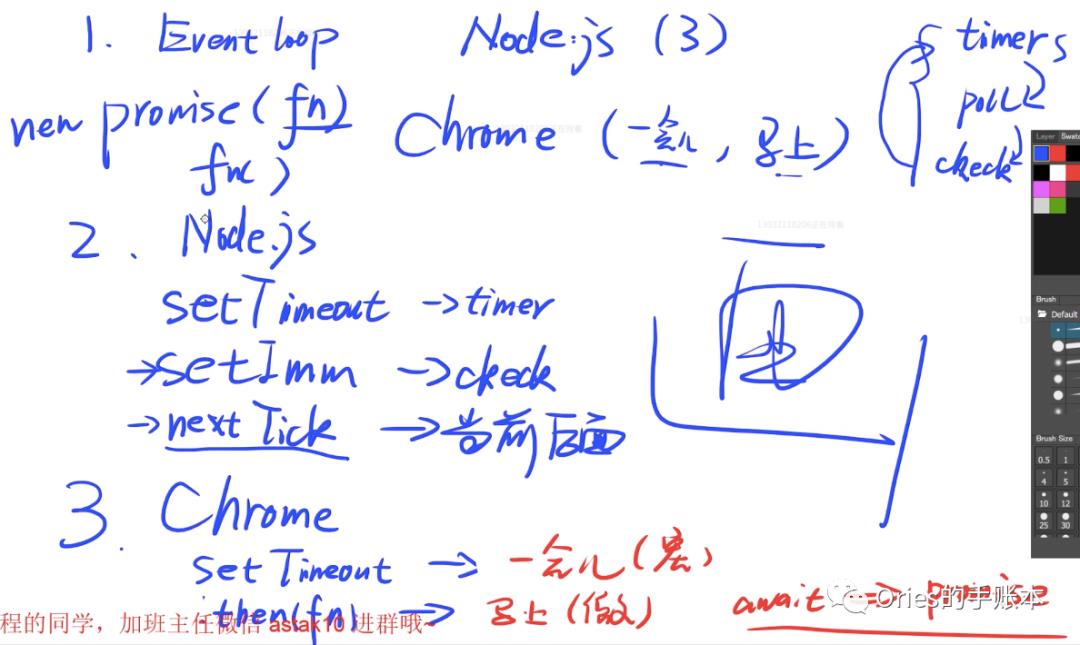 1. Event loop Node.js (3)
timers
poll
check
new promise(fn)
fnc )
Chrome (一会儿, 马上)
2. Node.js
setTimeout → timer
→ setImm → check
→ nextTick → 当前后面
3. Chrome
setTimeout → 一会儿 (宏)
.then(fn) → 马上 (微)
await => promise
Ories的手账本
程的同学，加班主任微信 astak10 进群哦~
Layer Swatc
Brush
Default
Brush Size
0.5 1
4 5
10 12
25 30